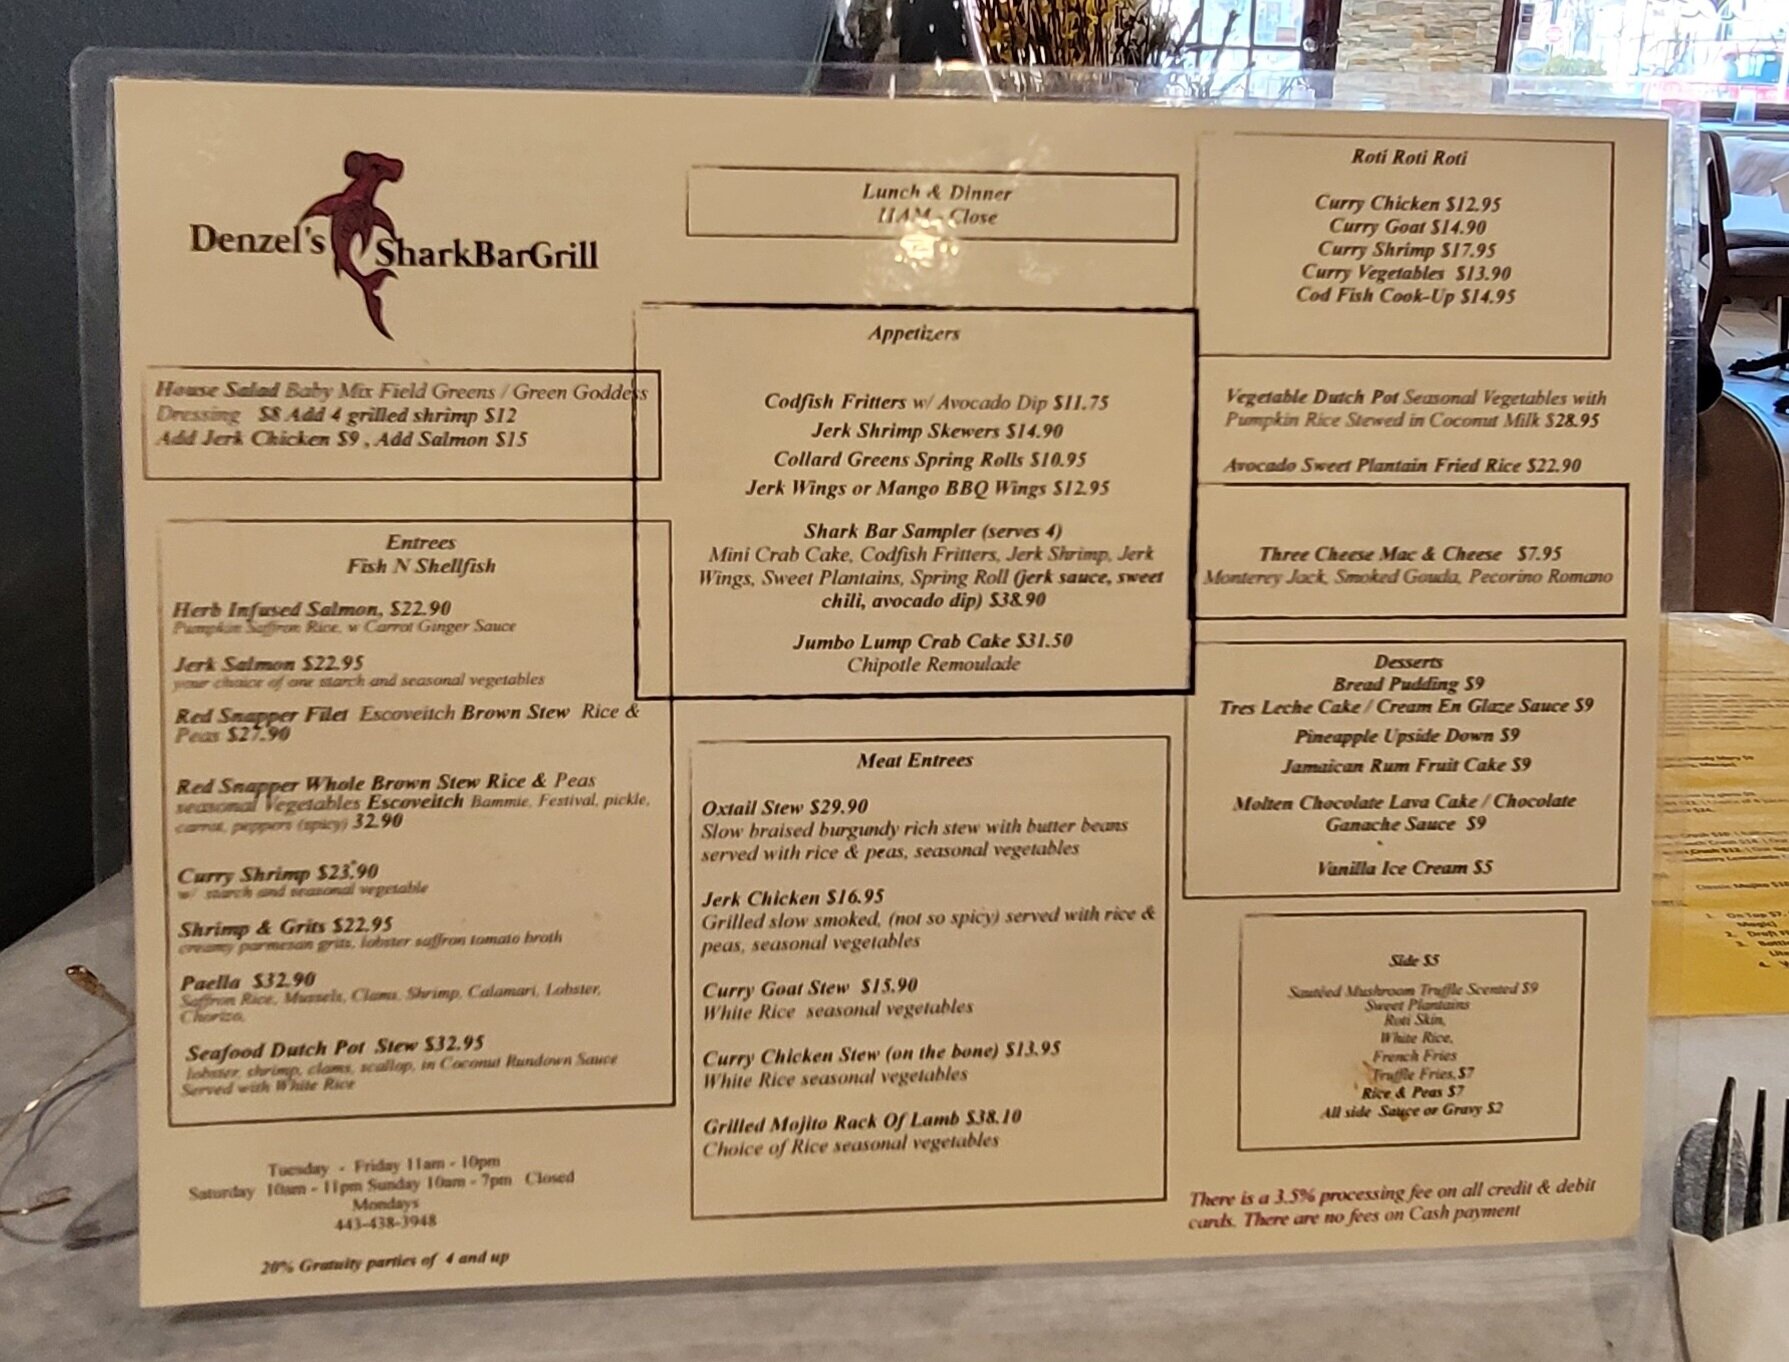 Denzel's SharkBarGrill
House Salad Baby Mix Field Greens / Green Goddess
Dressing $8 Add 4 grilled shrimp $12
Add Jerk Chicken $9 , Add Salmon $15
Entrees
Fish N Shellfish
Herb Infused Salmon, $22.90
Pumpkin Saffron Rice, w Carrot Ginger Sauce
Jerk Salmon $22.95
your choice of one starch and seasonal vegetables
Red Snapper Filet Escoveitch Brown Stew Rice &
Peas $27.90
Red Snapper Whole Brown Stew Rice & Peas
seasonal Vegetables Escoveitch Bammie, Festival, pickle,
carrot, peppers (spicy) 32.90
Curry Shrimp $23.90
w/ starch and seasonal vegetable
Shrimp & Grits $22.95
creamy parmesan grits, lobster saffron tomato broth
Paella $32.90
Saffron Rice, Mussels, Clams, Shrimp, Calamari, Lobster,
Chorizo,
Seafood Dutch Pot Stew $32.95
lobster, shrimp, clams, scallop, in Coconut Rundown Sauce
Served with White Rice
Tuesday - Friday 11am - 10pm
Saturday 10am - 11pm Sunday 10am - 7pm Closed
Mondays
443-438-3948
20% Gratuity parties of 4 and up
Lunch & Dinner
11AM - Close
Appetizers
Codfish Fritters w/ Avocado Dip $11.75
Jerk Shrimp Skewers $14.90
Collard Greens Spring Rolls $10.95
Jerk Wings or Mango BBQ Wings $12.95
Shark Bar Sampler (serves 4)
Mini Crab Cake, Codfish Fritters, Jerk Shrimp, Jerk
Wings, Sweet Plantains, Spring Roll (jerk sauce, sweet
chili, avocado dip) $38.90
Jumbo Lump Crab Cake $31.50
Chipotle Remoulade
Meat Entrees
Oxtail Stew $29.90
Slow braised burgundy rich stew with butter beans
served with rice & peas, seasonal vegetables
Jerk Chicken $16.95
Grilled slow smoked, (not so spicy) served with rice &
peas, seasonal vegetables
Curry Goat Stew $15.90
White Rice seasonal vegetables
Curry Chicken Stew (on the bone) $13.95
White Rice seasonal vegetables
Grilled Mojito Rack Of Lamb $38.10
Choice of Rice seasonal vegetables
Roti Roti Roti
Curry Chicken $12.95
Curry Goat $14.90
Curry Shrimp $17.95
Curry Vegetables $13.90
Cod Fish Cook-Up $14.95
Vegetable Dutch Pot Seasonal Vegetables with
Pumpkin Rice Stewed in Coconut Milk $28.95
Avocado Sweet Plantain Fried Rice $22.90
Three Cheese Mac & Cheese $7.95
Monterey Jack, Smoked Gouda, Pecorino Romano
Desserts
Bread Pudding $9
Tres Leche Cake / Cream En Glaze Sauce $9
Pineapple Upside Down $9
Jamaican Rum Fruit Cake $9
Molten Chocolate Lava Cake / Chocolate
Ganache Sauce $9
Vanilla Ice Cream $5
Side $5
Sautéed Mushroom Truffle Scented $9
Sweet Plantains
Roti Skin,
White Rice,
French Fries
Truffle Fries, $7
Rice & Peas $7
All side Sauce or Gravy $2
There is a 3.5% processing fee on all credit & debit
cards. There are no fees on Cash payment